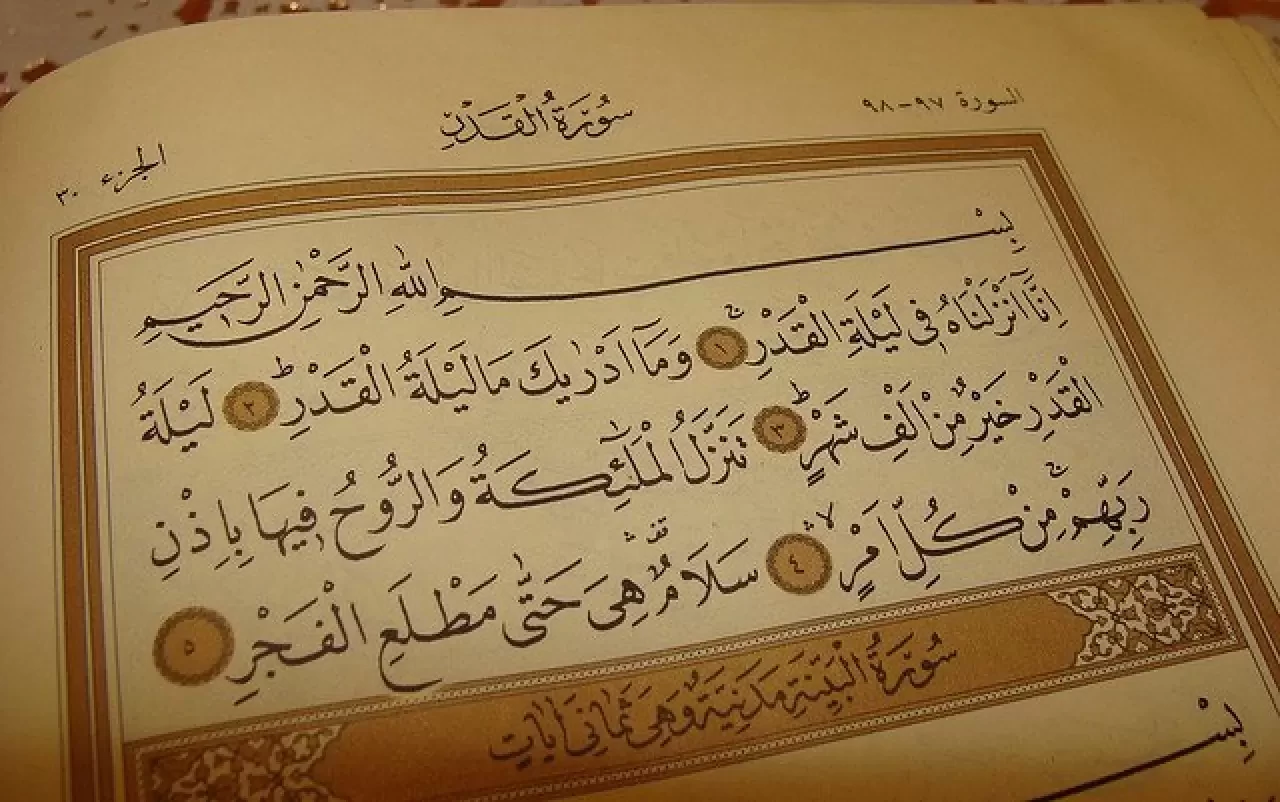 السورة ٩٧-٩٨
سُورَةُ الْقَدْرِ
الجزء ٣٠
بِسْمِ اللهِ الرَّحْمٰنِ الرَّحِيمِ
اِنَّٓا اَنْزَلْنَاهُ ف۪ي لَيْلَةِ الْقَدْرِۚ ﴿١﴾ وَمَٓا اَدْرٰيكَ مَا لَيْلَةُ الْقَدْرِۜ ﴿٢﴾ لَيْلَةُ
الْقَدْرِ خَيْرٌ مِنْ اَلْفِ شَهْرٍۜ ﴿٣﴾ تَنَزَّلُ الْمَلٰٓئِكَةُ وَالرُّوحُ ف۪يهَا بِاِذْنِ
رَبِّهِمْۚ مِنْ كُلِّ اَمْرٍۙۛ ﴿٤﴾ سَلَامٌ۠ۛ هِيَ حَتّٰى مَطْلَعِ الْفَجْرِ ﴿٥﴾
سُورَةُ الْبَيِّنَةِ مَدَنِيَّةٌ وَهِيَ ثَمَانِي اٰيَاتٍ
بِسْـ